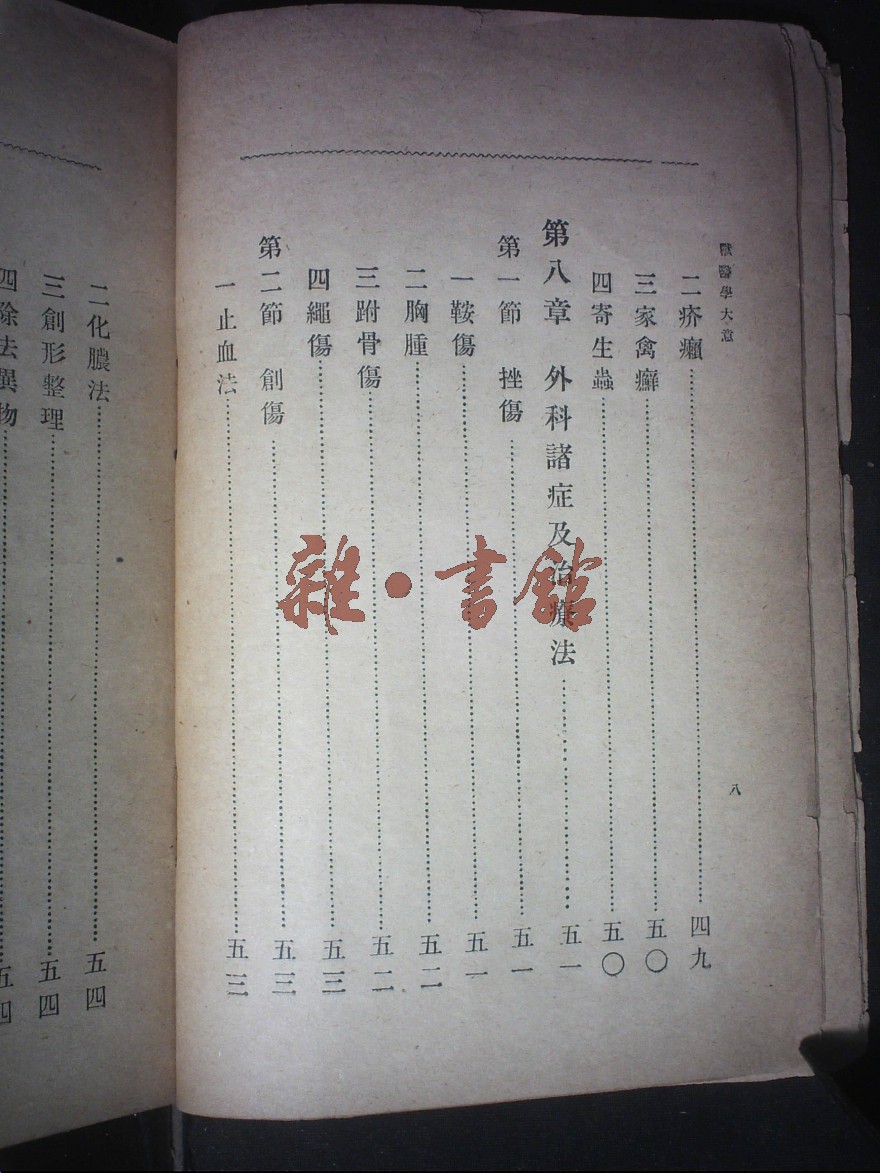 獸醫學大意
八
二疥癩……四九
三家禽癬……五〇
四寄生蟲……五〇
第八章 外科諸症及治療法……五一
第一節 挫傷……五一
一鞍傷……五一
二胸腫……五二
三跗骨傷……五二
四繩傷……五三
第二節 創傷……五三
一止血法……五三
二化膿法……五四
三創形整理……五四
四除去異物……五四
雜·書館